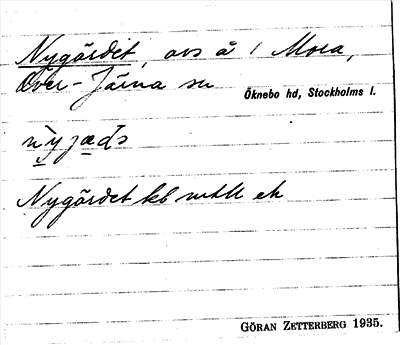 Nygärdet, avs å 1 Mora,
Över-Järna sn
Öknebo hd, Stockholms l.
Nygärdet kb mtll ek
GÖRAN ZETTERBERG 1935.